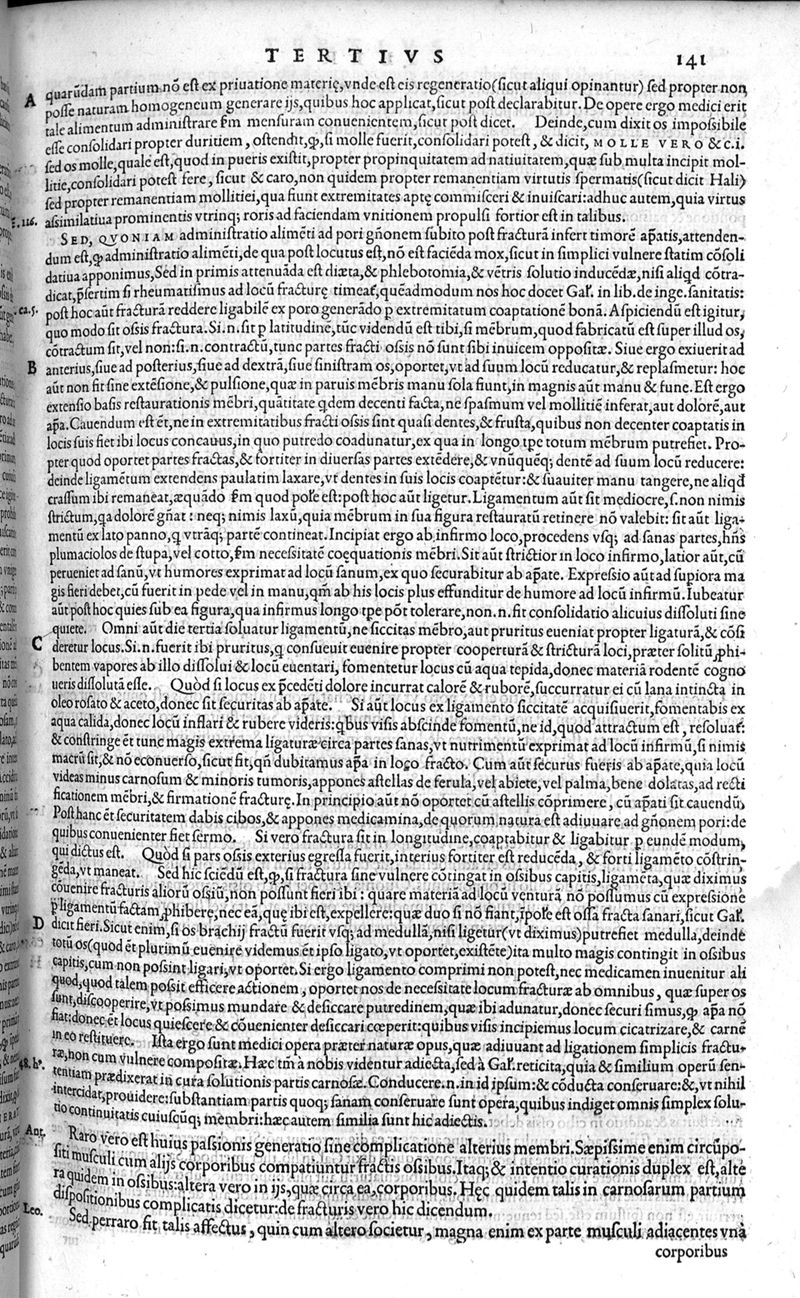 TERTIVS 141
A quarũdam partium nõ est ex priuatione materię, vnde est eis regeneratio (sicut aliqui opinantur) sed propter non
posse naturam homogeneum generare ijs, quibus hoc applicat, sicut post declarabitur. De opere ergo medici erit
tale alimentum administrare ſm mensuram conuenientem, sicut post dicet. Deinde, cum dixit os impossibile
esse consolidari propter duritiem, ostendit, ꝙ, si molle fuerit, consolidari potest, & dicit, MOLLE VERO &c. i.
sed os molle, quale est, quod in pueris existit, propter propinquitatem ad natiuitatem, quæ sub multa incipit mol-
litie, consolidari potest fere, sicut & caro, non quidem propter remanentiam virtutis spermatis (sicut dicit Hali)
sed propter remanentiam mollitiei, qua fiunt extremitates aptę commisceri & inuiscari: adhuc autem, quia virtus
assimilatiua prominentis vtrinq; roris ad faciendam vnitionem propulsi fortior est in talibus.
SED, QVONIAM administratio alimẽti ad pori gñonem subito post fracturã infert timorẽ ap̃atis, attenden-
dum est, ꝙ administratio alimẽti, de qua post locutus est, nõ est faciẽda mox, sicut in simplici vulnere statim cõsoli
datiua apponimus, Sed in primis attenuãda est diæta, & phlebotomia, & vẽtris solutio inducẽdæ, nisi aliqd cõtra-
dicat, p̃sertim si rheumatismus ad locũ fracturę timeat̃, quẽadmodum nos hoc docet Gal̃. in lib. de inge. sanitatis:
post hoc aũt fracturã reddere ligabilẽ ex poro generãdo p extremitatum coaptationẽ bonã. Aspiciendũ est igitur,
quo modo sit ossis fractura. Si. n. sit p latitudinẽ, tũc videndũ est tibi, si mẽbrum, quod fabricatũ est super illud os,
cõtractum sit, vel non: si. n. contractũ, tunc partes fracti ossis nõ sunt sibi inuicem oppositæ. Siue ergo exiuerit ad
B anterius, siue ad posterius, siue ad dextrã, siue sinistram os, oportet, vt ad suum locũ reducatur, & replasmetur: hoc
aũt non fit sine extẽsione, & pulsione, quæ in paruis mẽbris manu sola fiunt, in magnis aũt manu & fune. Est ergo
extensio basis restaurationis mẽbri, quãtitate qdem decenti facta, ne spasmum vel mollitiẽ inferat, aut dolorẽ, aut
ap̃a. Cauendum est ẽt, ne in extremitatibus fracti ossis sint quasi dentes, & frusta, quibus non decenter coaptatis in
locis suis fiet ibi locus concauus, in quo putredo coadunatur, ex qua in longo tp̃e totum mẽbrum putrefiet. Pro-
pter quod oportet partes fractas, & fortiter in diuersas partes extẽdere, & vnũquẽq; dentẽ ad suum locũ reducere:
deinde ligamẽtum extendens paulatim laxare, vt dentes in suis locis coaptẽtur: & suauiter manu tangere, ne aliqd
crassum ibi remaneat, æquãdo ſm quod pot̃e est: post hoc aũt ligetur. Ligamentum aũt sit mediocre, s. non nimis
strictum, qa dolorẽ gñat: neq; nimis laxũ, quia mẽbrum in sua figura restauratũ retinere nõ valebit: sit aũt liga-
mentũ ex lato panno, q vtrãq; partẽ contineat. Incipiat ergo ab infirmo loco, procedens vsq; ad sanas partes, hñs
plumaciolos de stupa, vel cotto, ſm necessitatẽ coęquationis mẽbri. Sit aũt strictior in loco infirmo, latior aũt, cũ
perueniet ad sanũ, vt humores exprimat ad locũ sanum, ex quo securabitur ab ap̃ate. Expressio aũt ad supiora ma
gis fieri debet, cũ fuerit in pede vel in manu, qm̃ ab his locis plus effunditur de humore ad locũ infirmũ. Iubeatur
aũt post hoc quies sub ea figura, qua infirmus longo tp̃e põt tolerare, non. n. fit consolidatio alicuius dissoluti sine
quiete. Omni aũt die tertia soluatur ligamentũ, ne siccitas mẽbro, aut pruritus eueniat propter ligaturã, & cõsi
C deretur locus. Si. n. fuerit ibi pruritus, q consueuit euenire propter coopertura & stricturã loci, præter solitũ, phi-
bentem vapores ab illo dissolui & locũ euentari, fomentetur locus cũ aqua tepida, donec materiã rodentẽ cogno
ueris dissolutã esse. Quòd si locus ex p̃cedẽti dolore incurrat calorẽ & ruborẽ, succurratur ei cũ lana intincta in
oleo rosato & aceto, donec sit securitas ab ap̃ate. Si aũt locus ex ligamento siccitatẽ acquisiuerit, fomentabis ex
aqua calida, donec locũ inflari & rubere videris: qbus visis abscinde fomentũ, ne id, quod attractum est, resoluat̃:
& constringe ẽt tunc magis extrema ligaturæ circa partes sanas, vt nutrimentũ exprimat ad locũ infirmũ, si nimis
macrũ sit, & nõ econuerso, sicut fit, qñ dubitamus ap̃a in loco fracto. Cum aũt securus fueris ab ap̃ate, quia locũ
videas minus carnosum & minoris tumoris, appones astellas de ferula, vel abiete, vel palma, bene dolatas, ad recti
ficationem mẽbri, & firmationẽ fracturę. In principio aũt nõ oportet cũ astellis cõprimere, cũ ap̃ati sit cauendũ,
Post hanc ẽt securitatem dabis cibos, & appones medicamina, de quorum natura est adiuuare ad gñonem pori: de
quibus conuenienter fiet sermo. Si vero fractura sit in longitudine, coaptabitur & ligabitur p eundẽ modum,
qui dictus est. Quòd si pars ossis exterius egressa fuerit, interius fortiter est reducẽda, & forti ligamẽto cõstrin-
gẽda, vt maneat. Sed hic sciẽdũ est, ꝙ, si fractura sine vulnere cõtingat in ossibus capitis, ligamẽta, quæ diximus
cõuenire fracturis aliorũ ossiũ, non possunt fieri ibi: quare materiã ad locũ venturã nõ possumus cũ expressione
p ligamentũ factam, phibere, nec ea, quę ibi est, expellere: quæ duo si nõ fiant, ĩpole est ossa fracta sanari, sicut Gal̃.
D dicit fieri. Sicut enim, si os brachij fractũ fuerit vsq; ad medullã, nisi ligetur (vt diximus) putrefiet medulla, deinde
totũ os (quod ẽt plurimũ euenire videmus ẽt ipso ligato, vt oportet, existẽte) ita multo magis contingit in ossibus
capitis, cum non possint ligari, vt oportet. Si ergo ligamento comprimi non potest, nec medicamen inuenitur ali
quod, quod talem possit efficere actionem, oportet nos de necessitate locum fracturæ ab omnibus, quæ super os
sunt, discooperire, vt possimus mundare & desiccare putredinem, quæ ibi adunatur, donec securi simus, ꝙ ap̃a nõ
fiat: donec ẽt locus quiescere & cõuenienter desiccari cœperit: quibus visis incipiemus locum cicatrizare, & carnẽ
in eo restituere. Ista ergo sunt medici opera præter naturæ opus, quæ adiuuant ad ligationem simplicis fractu-
ræ, non cum vulnere compositæ. Hæc tm̃ à nobis videntur adiecta, sed à Gal̃. reticita, quia & similium operũ sen-
tentiam prædixerat in cura solutionis partis carnosæ. Conducere. n. in id ipsum: & cõducta conseruare: &, vt nihil
intercidat, prouidere: substantiam partis quoq; sanam conseruare sunt opera, quibus indiget omnis simplex solu-
tio continuitatis cuiuscũq; membri: hæc autem similia sunt hic adiectis.
Raro vero est huius passionis generatio sine complicatione alterius membri. Sæpissime enim circũpo-
siti musculi cum alijs corporibus compatiuntur fractis ossibus. Itaq; & intentio curationis duplex est, alte
ra quidem in ossibus: altera vero in ijs, quæ circa ea, corporibus. Hęc quidem talis in carnosarum partium
dispositionibus complicatis dicetur: de fracturis vero hic dicendum.
Leo. Sed perraro fit talis affectus, quin cum altero societur, magna enim ex parte musculi adiacentes vnà
corporibus